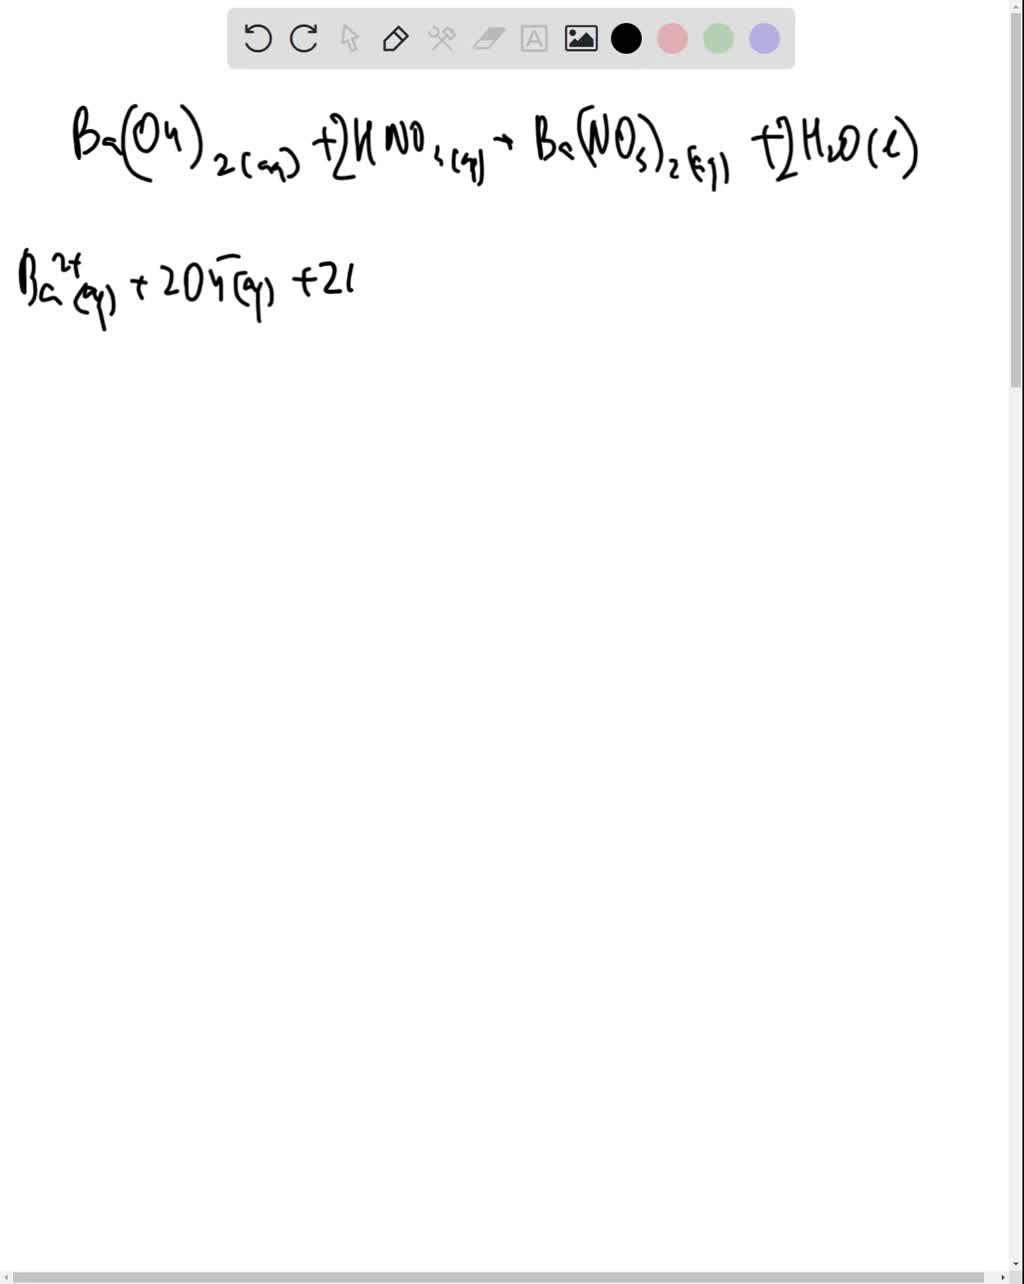 Ba(OH)₂(aq) + 2HNO₃(aq) → Ba(NO₃)₂(aq) + 2H₂O(l)
Ba²⁺(aq) + 2OH⁻(aq) + 2